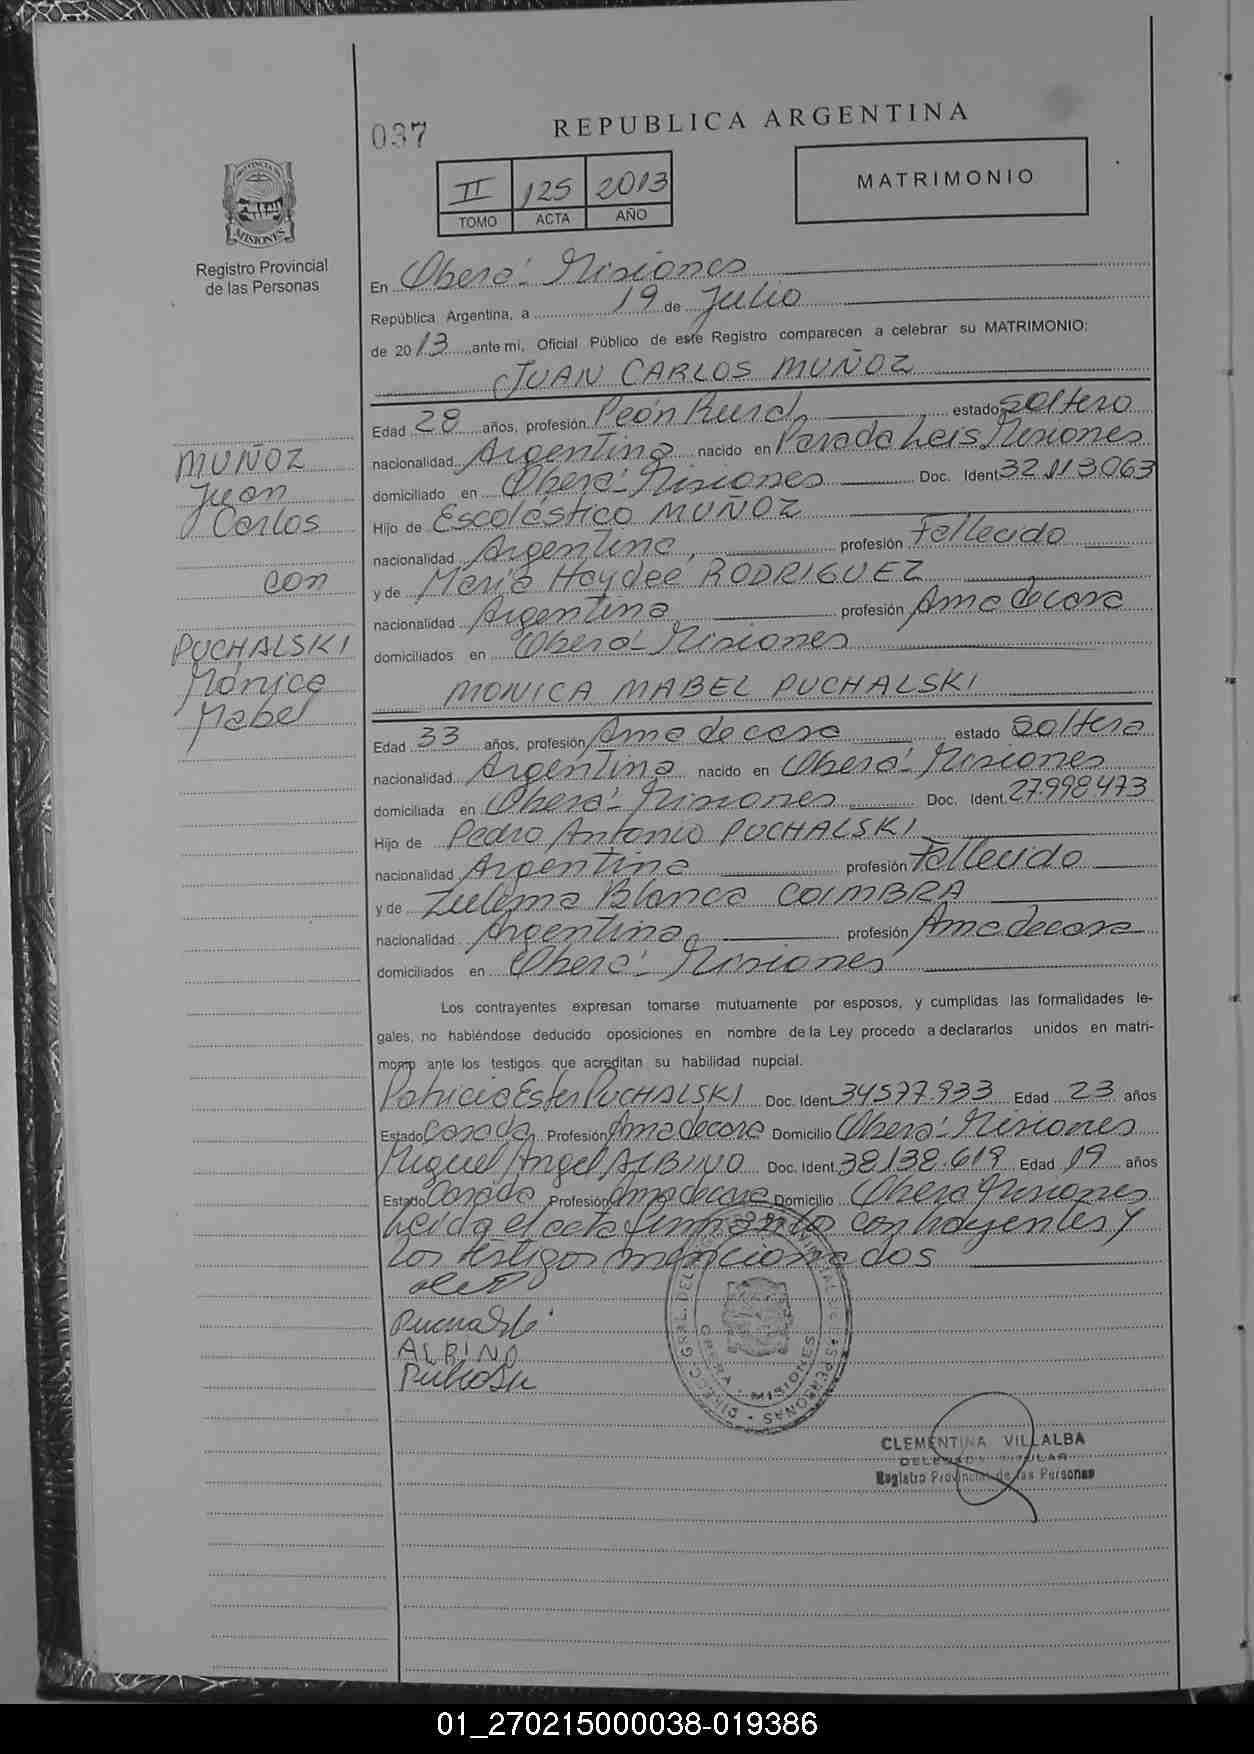 037
REPUBLICA ARGENTINA
PROVINCIA DE
MISIONES
Registro Provincial
de las Personas
II 125 2013
TOMO ACTA AÑO
MATRIMONIO
En Oberá - Misiones
República Argentina, a 19 de Julio
de 2013 ante mi, Oficial Público de este Registro comparecen a celebrar su MATRIMONIO:
JUAN CARLOS MUÑOZ
Edad 28 años, profesión Peón Rural estado soltero
nacionalidad Argentina nacido en Parada Leis, Misiones
domiciliado en Oberá - Misiones Doc. Ident 32.113.063
Hijo de Escolástico MUÑOZ
nacionalidad Argentina profesión Fallecido
y de María Haydeé RODRIGUEZ
nacionalidad Argentina profesión Ama de casa
domiciliados en Oberá - Misiones
MUÑOZ
Juan
Carlos
con
PUCHALSKI
Mónica
Mabel
MONICA MABEL PUCHALSKI
Edad 33 años, profesión Ama de casa estado Soltera
nacionalidad Argentina nacido en Oberá - Misiones
domiciliada en Oberá - Misiones Doc. Ident. 27.998.473
Hijo de Pedro Antonio PUCHALSKI
nacionalidad Argentina profesión Fallecido
y de Zulema Blanca COIMBRA
nacionalidad Argentina profesión Ama de casa
domiciliados en Oberá - Misiones
Los contrayentes expresan tomarse mutuamente por esposos, y cumplidas las formalidades le-
gales, no habiéndose deducido oposiciones en nombre de la Ley procedo a declararlos unidos en matri-
monio ante los testigos que acreditan su habilidad nupcial.
Patricia Ester PUCHALSKI Doc. Ident. 34577.933 Edad 23 años
Estado Casada Profesión Ama de casa Domicilio Oberá - Misiones
Miguel Angel ALBINO Doc. Ident. 38.138.619 Edad 19 años
Estado Casado Profesión Ama de casa Domicilio Oberá Misiones
Leída el acta firman los contrayentes y
los testigos mencionados
Puchalski
ALBINO
OBERA - MISIONES
CLEMENTINA VILLALBA
DELEGADA TITULAR
Registro Provincial de las Personas
01_270215000038-019386